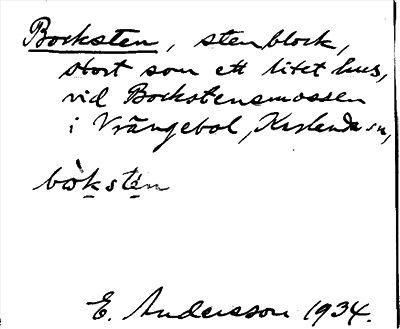 Bocksten, stenblock,
stort som ett litet hus,
vid Bockstensmossen
i Vrängebol, Karlanda sn,
bòksten
E. Andersson 1934.